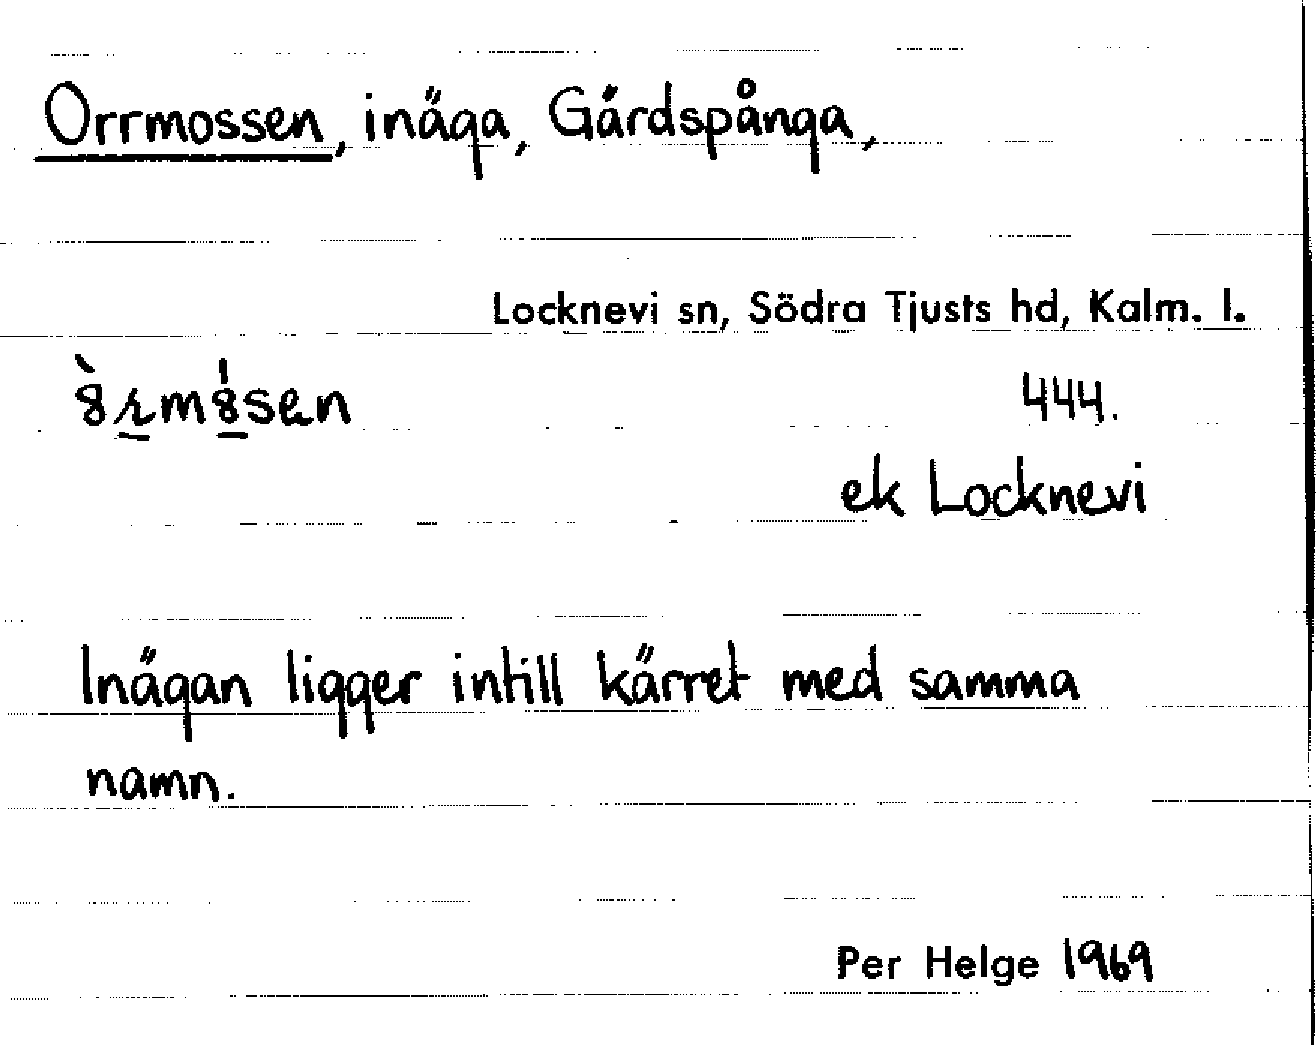 Orrmossen, inäga, Gårdspånga,
Locknevi sn, Södra Tjusts hd, Kalm. l.
444.
ek Locknevi
Inägan ligger intill kärret med samma
namn.
Per Helge 1969